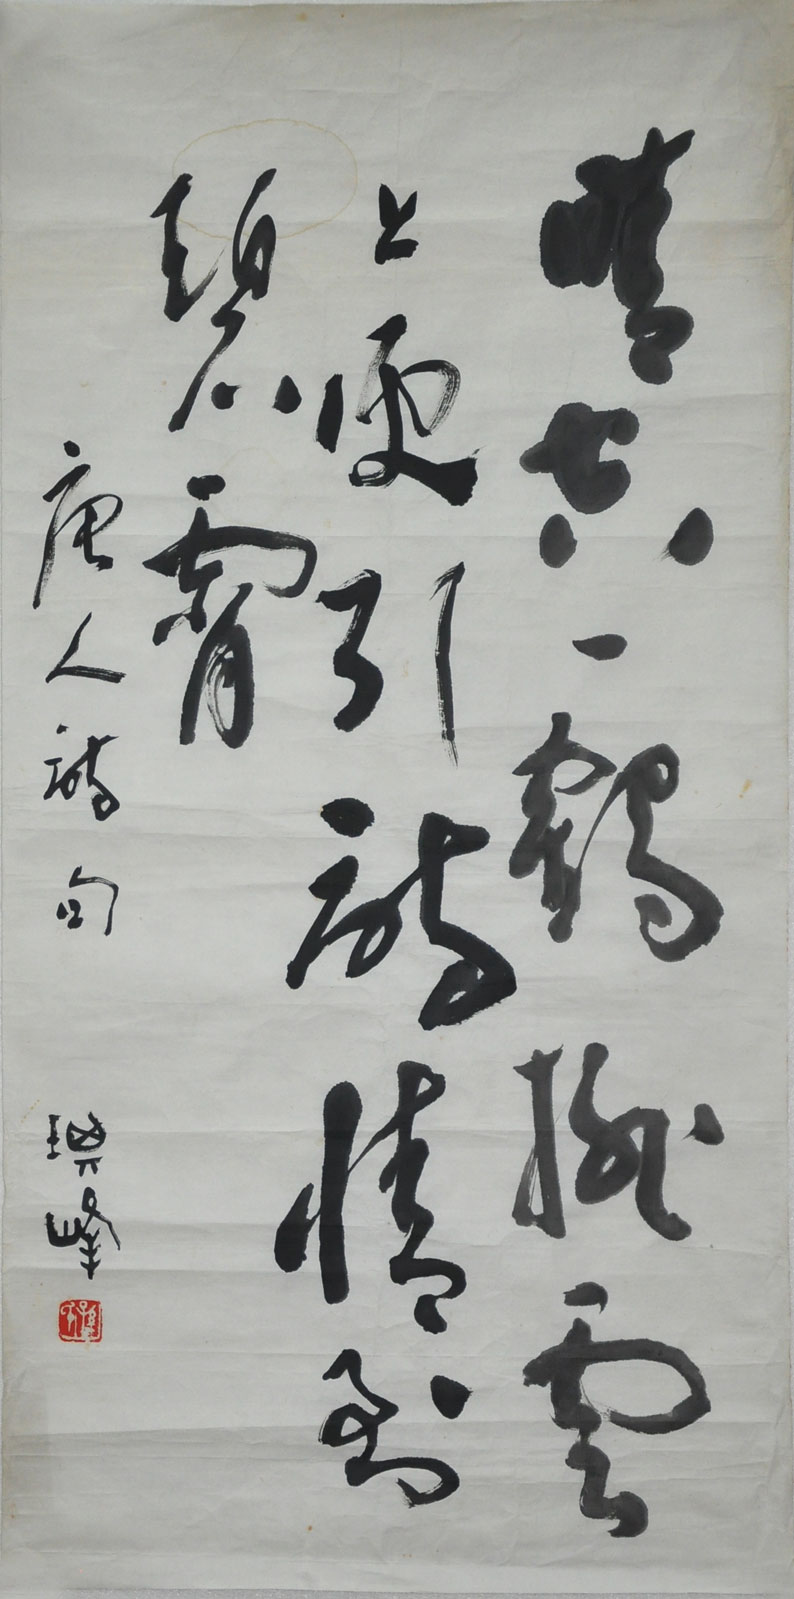 晴空一鶴排雲
上便引詩情到
碧霄
唐人詩句
琪峰